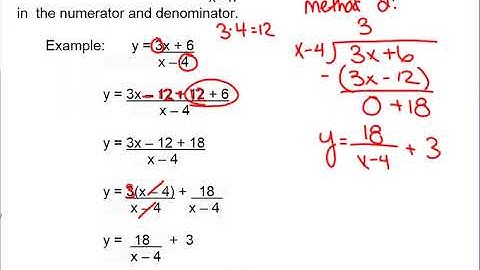 in the numerator and denominator.
Example: y = 3x + 6
x – 4
3·4=12
y = 3x – 12 + 12 + 6
x – 4
y = 3x – 12 + 18
x – 4
y = 3(x – 4) + 18
x – 4 x – 4
y = 18 + 3
x – 4
method 2:
3
x-4 3x+6
- (3x-12)
0 + 18
y = 18 + 3
x-4